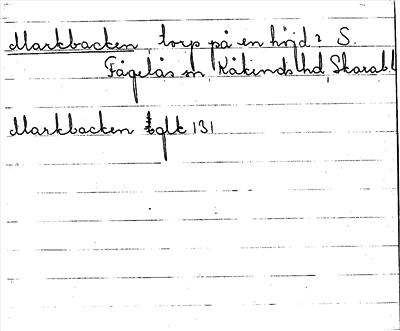 Markbacken, torp på en höjd i S.
Fågelås sn, Kåkinds hd, Skarab. l
Markbacken tglk 131